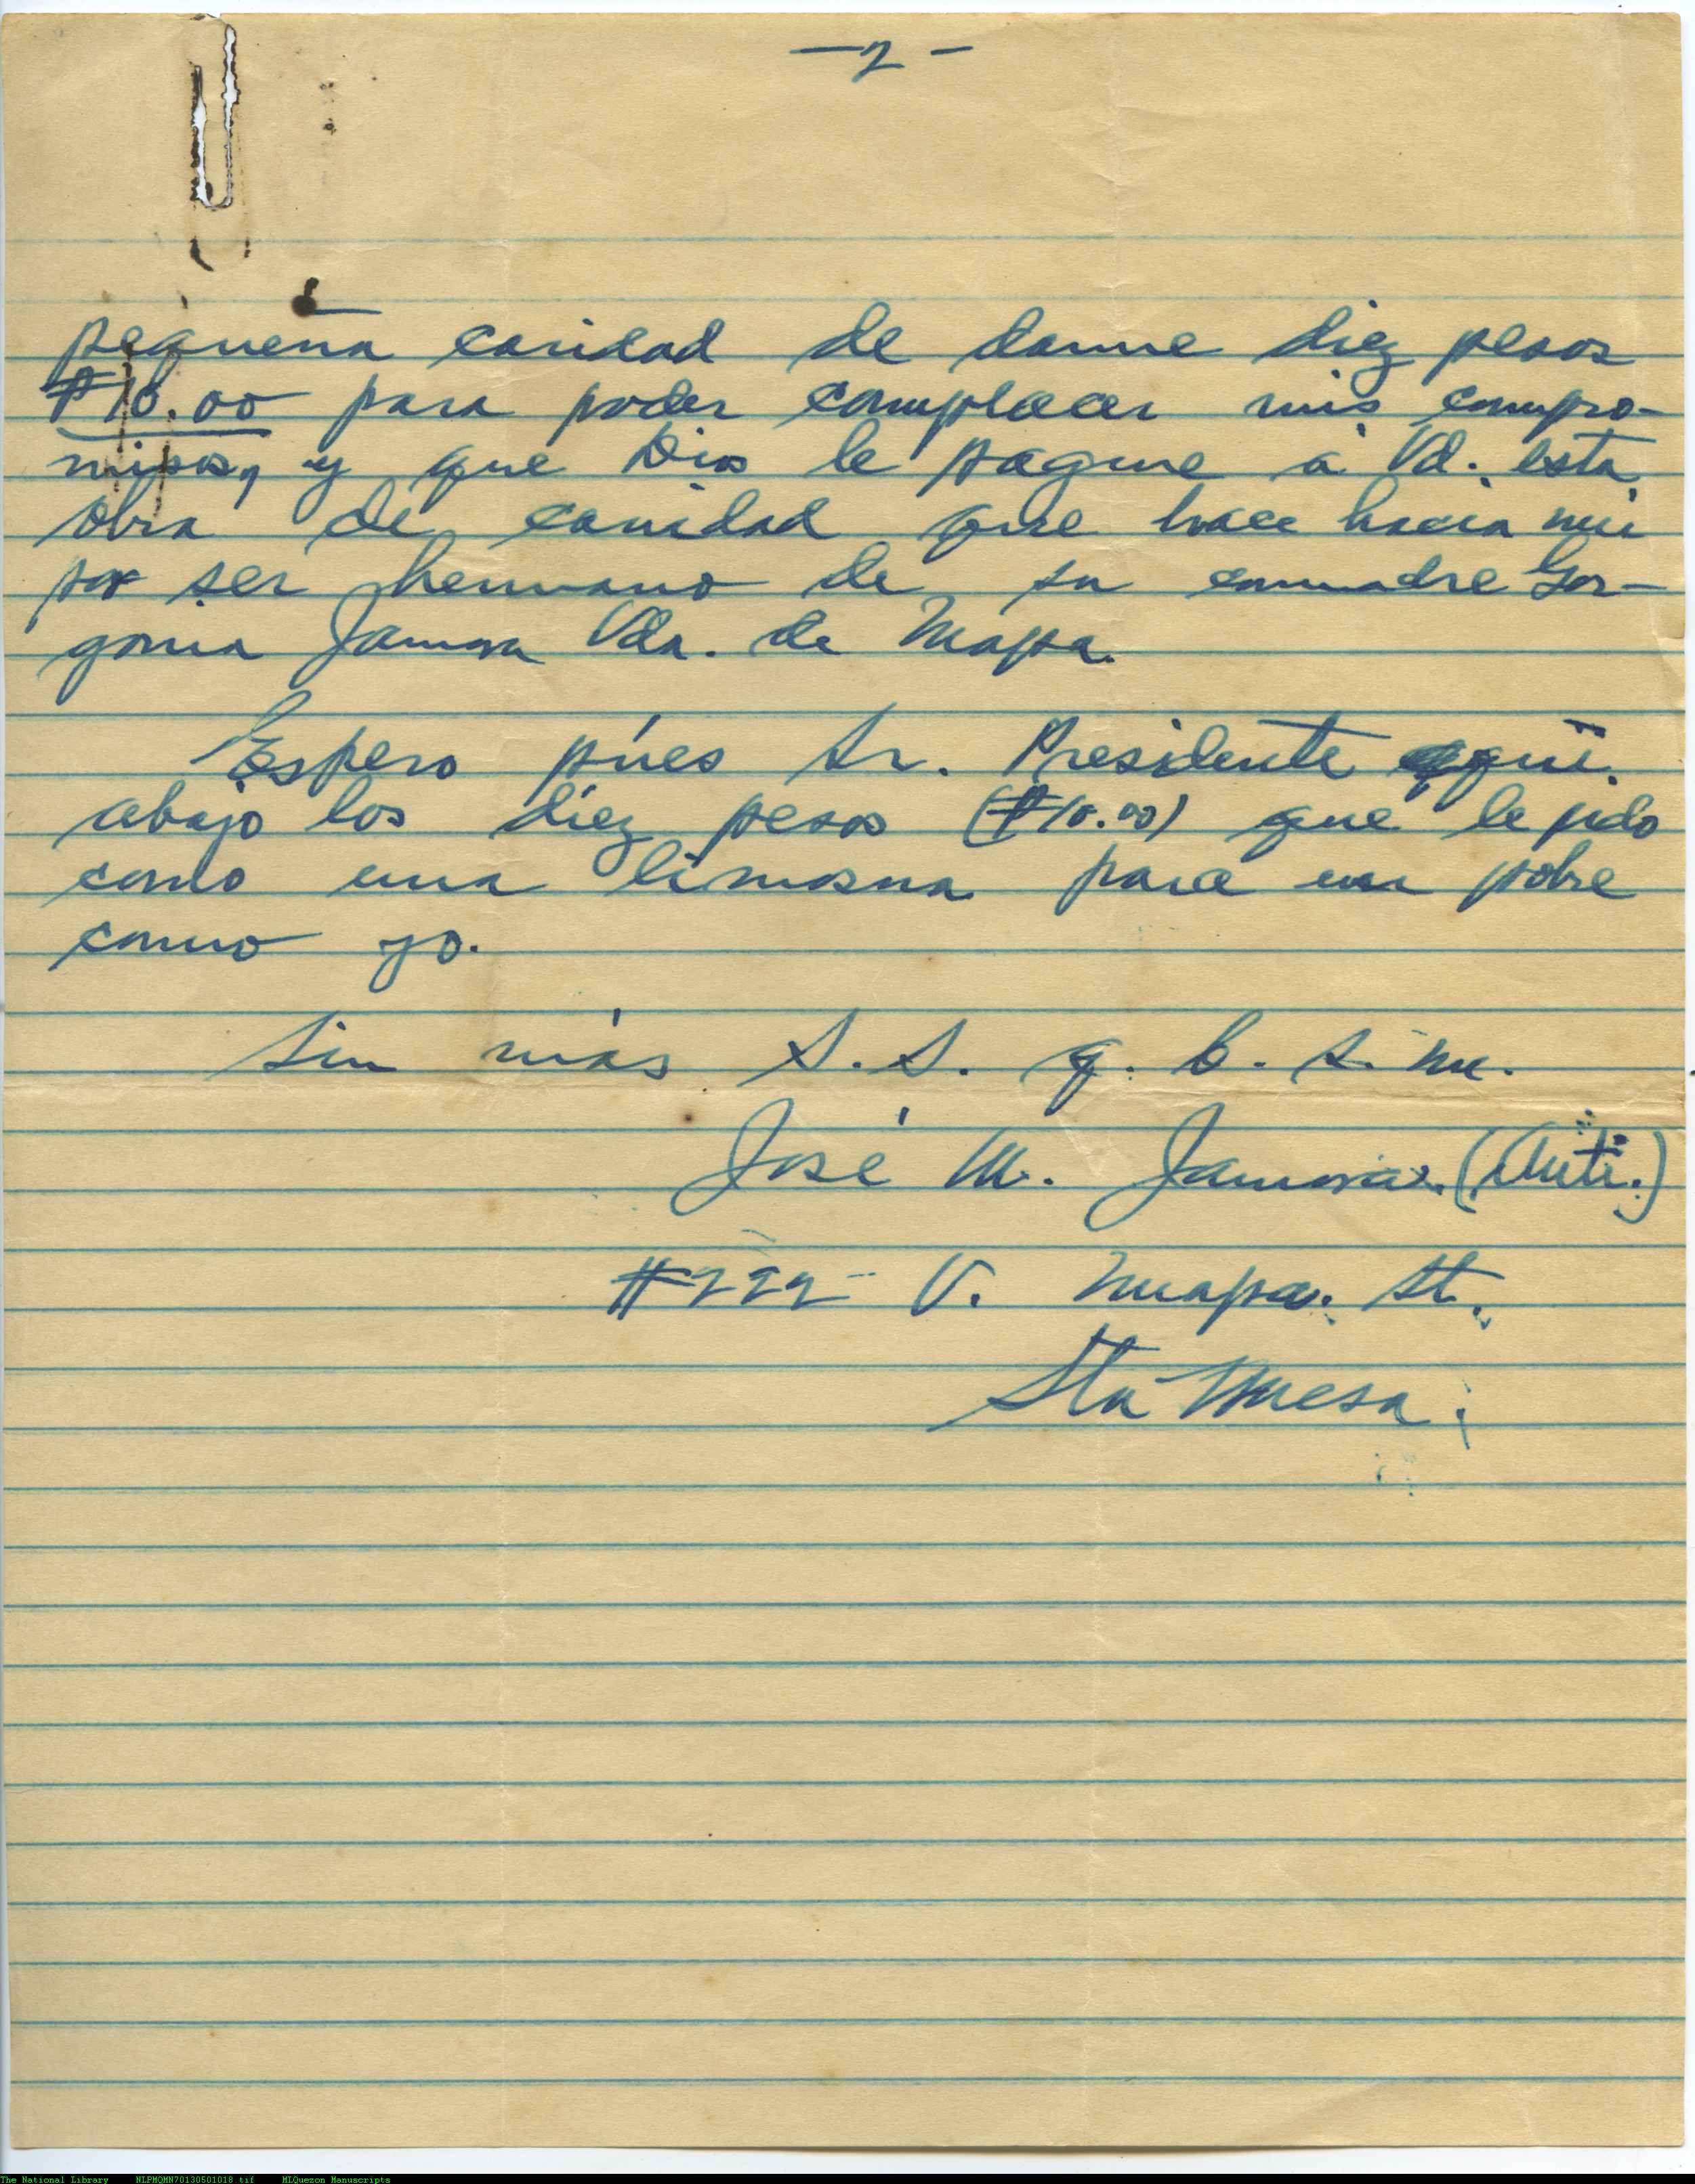 —2—
pequeña caridad de darme diez pesos
₱10.00 para poder complacer mis compro-
misos, y que Dios le pague á Vd. esta
obra de caridad que hace hacia mi
por ser hermano de su comadre Gor-
gonia Jamora Vda. de Mapa.
Espero púes Sr. Presidente aquí
abajo los diez pesos (₱10.00) que le pido
como una limosna para un pobre
como yo.
Sin más S. S. q. b. s. m.
José M. Jamora. (Auti.)
#222 V. Mapa. St.
Sta Mesa.
The National Library NLPMQMN70130501018.tif MLQuezon Manuscripts